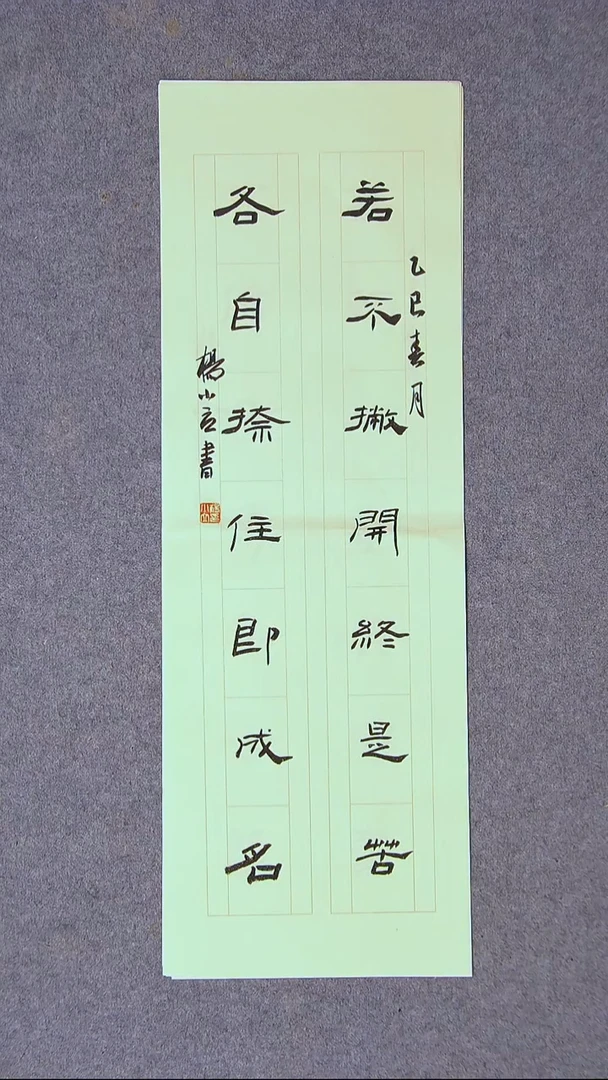 乙巳春月
若不撇開終是苦
各自捺住即成名
楊小言書